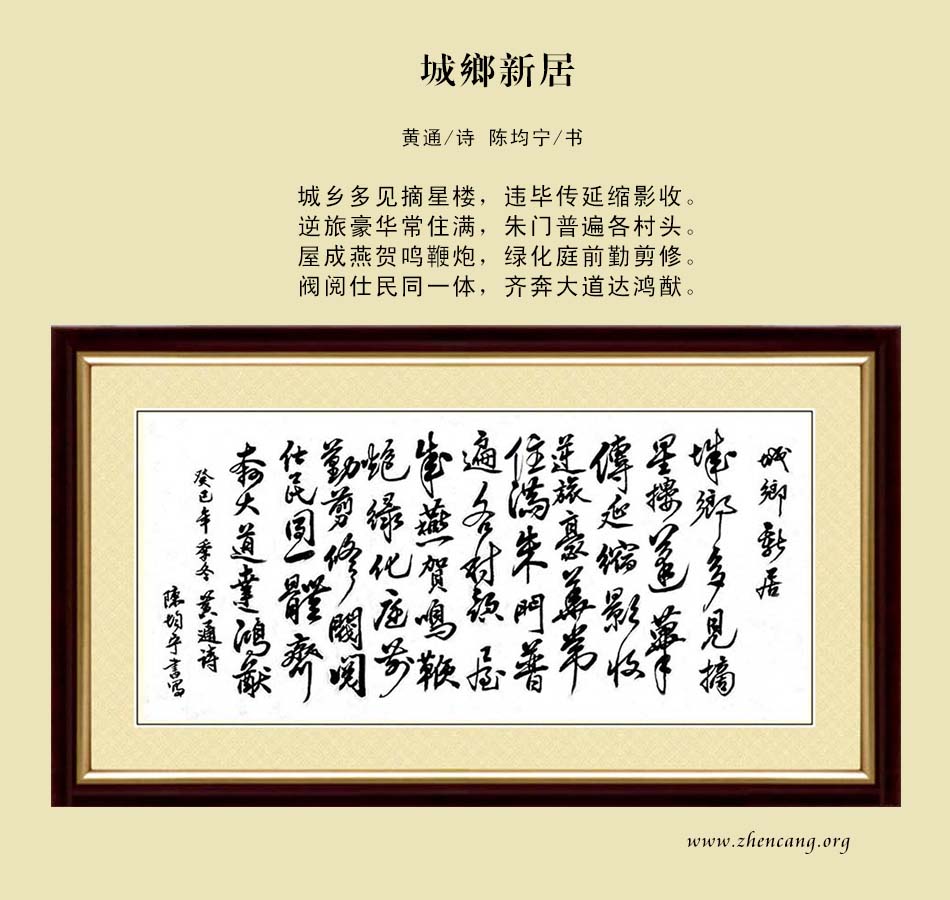 城鄉新居
黄通/诗 陈均宁/书
城乡多见摘星楼，违毕传延缩影收。
逆旅豪华常住满，朱门普遍各村头。
屋成燕贺鸣鞭炮，绿化庭前勤剪修。
阀阅仕民同一体，齐奔大道达鸿猷。
城鄉新居
城鄉多見摘
星摟蓬蓽
傳延縮影收
逆旅豪華常
住滿朱門普
遍各村頭屋
成燕賀鳴鞭
炮綠化庭前
勤剪修閥閱
仕民同一體齊
奔大道達鴻猷
癸巳年季冬 黃通詩
陳均宁書寫
www.zhencang.org